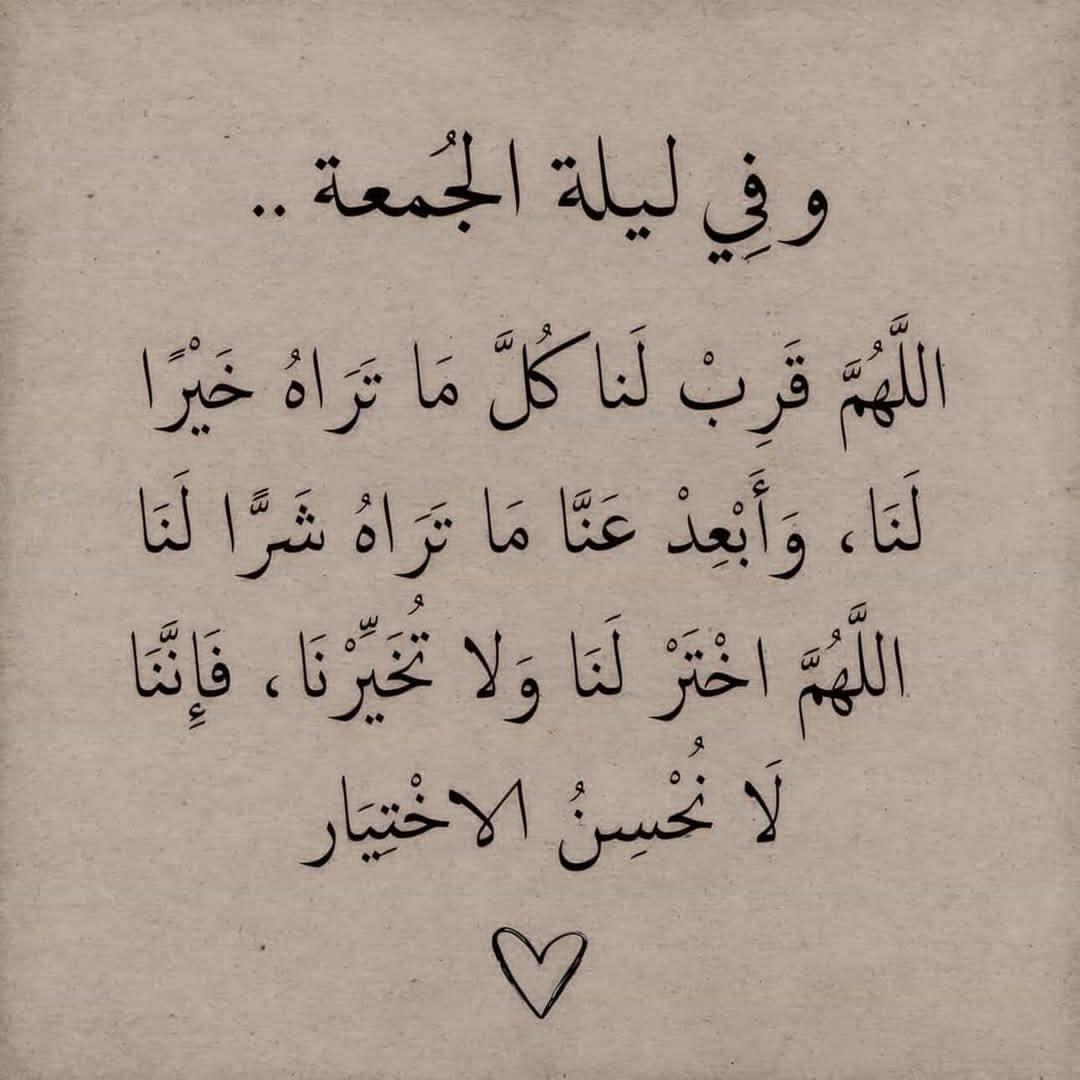 و فِي ليلة الجُمعة ..
اللَّهُمَّ قَرِبْ لَنا كُلَّ مَا تَرَاهُ خَيْرًا
لَنَا، وَأَبْعِدْ عَنَّا مَا تَرَاهُ شَرًّا لَنَا
اللَّهُمَّ اخْتَرْ لَنَا وَلا تُخَيِّرْنَا، فَإِنَّنَا
لَا نُحْسِنُ الاخْتِيَار